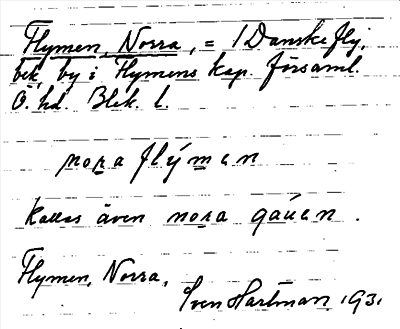 Flymen, Norra, = / Danskeflý,
bek by i Flymens kap. församl.
Ö. hd. Blek. l.
nora flýmen
Kallas även nora gåuen.
Flymen, Norra,
Sven Hartman, 1931